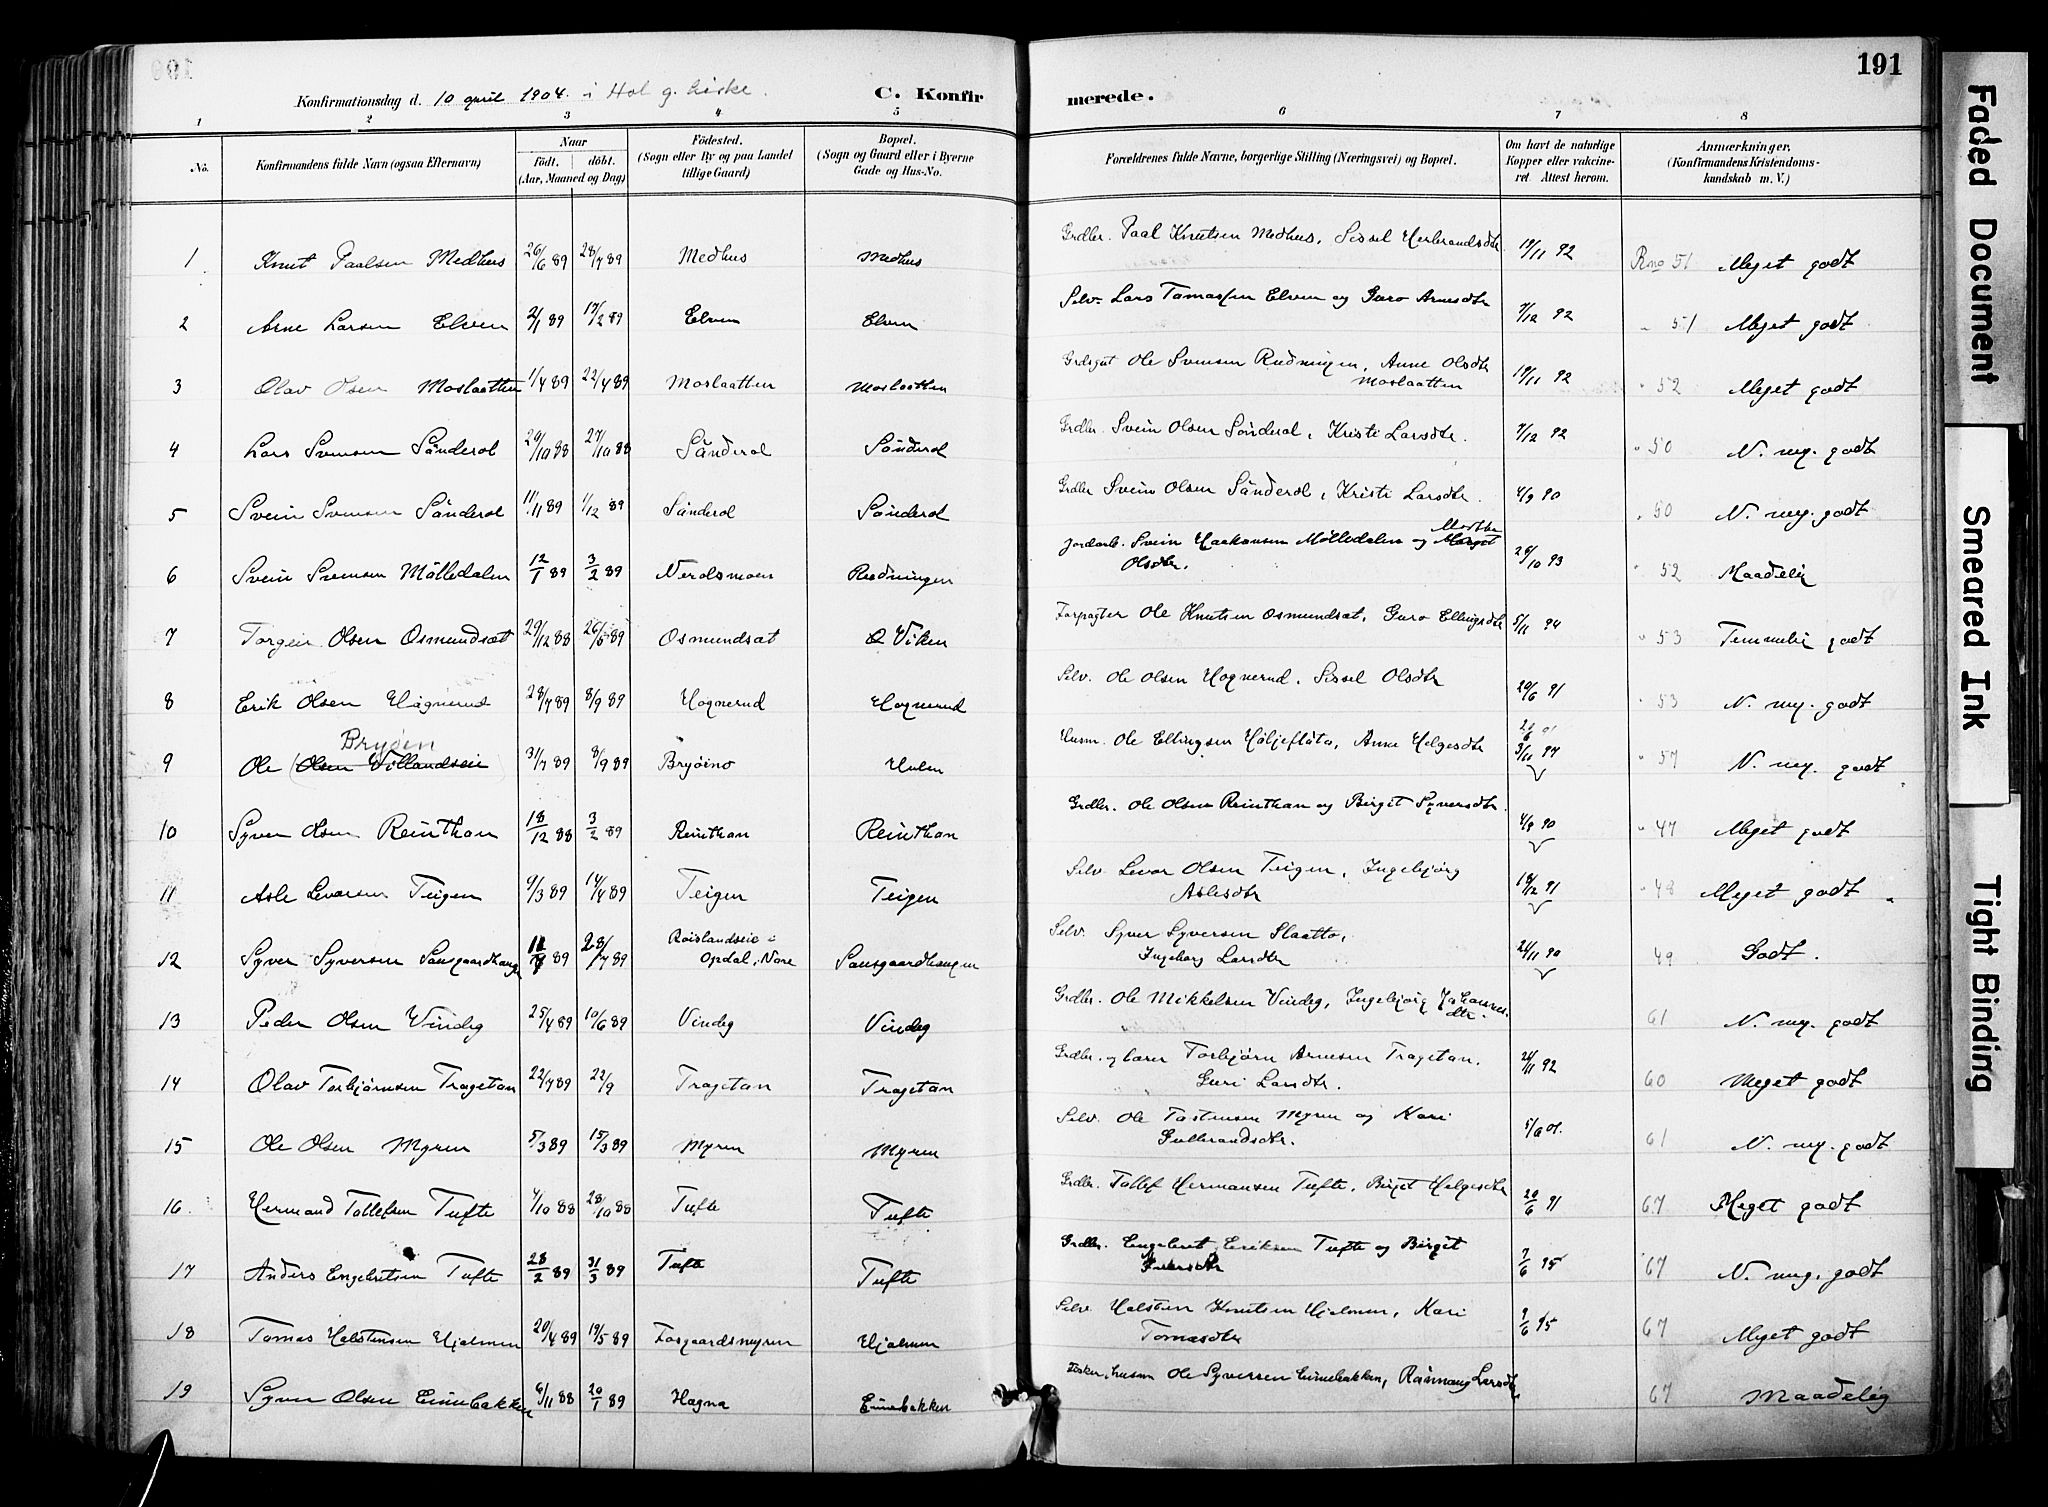 191
Konfirmationsdag d. 10 april 1904. i Hol g. kirke.
C. Konfirmerede.
1 2 3 4 5 6 7 8
No.
Konfirmandens fulde Navn (ogsaa Efternavn)
Naar
født. døbt.
(Aar, Maaned og Dag)
Födested.
(Sogn eller By og paa Landet
tillige Gaard)
Bopæl.
(Sogn og Gaard eller i Byerne
Gade og Hus-No.
Forældrenes fulde Navne, borgerlige Stilling (Næringsvei) og Bopæl.
Om havt de naturlige
Kopper eller vakcineret
Attest herom.
Anmærkninger,
(Konfirmandens Kristendoms-
kundskab m. V.)
1 Knut Paalsen Medhus 26/6 89 28/7 89 Medhus Medhus Grdbr. Paal Knutsen Medhus, Sissel Herbrandsdtr 19/11 92 Rno 51 Meget godt
2 Arne Larsen Elven 2/1 89 17/2 89 Elven Elven Selv. Lars Tamassen Elven og Guro Arnesdtr 7/12 92 " 51 Meget godt
3 Olav Olsen Moslaatten 1/4 89 22/4 89 Moslaatten Moslaatten Grdsgut Ole Svensen Rudningen, Anne Olsdtr
Moslaatten 19/11 92 " 52 Meget godt
4 Lars Svensen Sönderol 29/10 88 27/10 88 Sönderol Sönderol Grdbr. Svein Olsen Sönderol, Kristi Larsdtr. 7/12 92 " 50 N. my. godt
5 Svein Svensen Sönderol 11/11 89 1/12 89 Sönderol Sönderol Grdbr Svein Olsen Sönderol, Kristi Larsdtr. 4/9 90 " 50 N. my. godt
6 Svein Svensen Mölledalen 12/1 89 3/2 89 Nerdsmoen Rudningen Jordarb. Svein Haakonsen Mölledalen og Margit
Olsdtr. 29/10 93 " 52 Maadelig
7 Torgeir Olsen Osmundsæt 29/12 88 26/5 89 Osmundsat Viken Forpagter Ole Knutsen Osmundsat, Guro Ellingsdtr 5/11 94 " 53 Temmelig godt
8 Erik Olsen Hognerud 28/7 89 8/9 89 Hognerud Hognerud Selv. Ole Olsen Hognerud, Sissel Olsdtr 29/6 91 " 53 N. my. godt
Bryöen
9 Ole (Olsen Villandseie) 31/7 89 8/9 89 Bryöino Hulen Husm. Ole Ellingsen Höljeflöto, Anne Helgesdtr 3/11 97 " 57 N. my. godt
10 Syver Olsen Reinthan 18/12 88 3/2 89 Reinthan Reinthan Grdbr. Ole Olsen Reinthan og Birgit Syversdtr. 4/9 90 " 47 Meget godt
11 Asle Levorsen Teigen 9/3 89 14/4 89 Teigen Teigen Selv. Levor Olsen Teigen, Ingebjörg
Aslesdtr 19/12 91 " 48 Meget godt
12 Syver Syversen Sansgaardhaugen 89 28/7 89 Roislandseie i
Opdal, Nore Sansgaardhaugen Selv. Syver Syversen Slaatto,
Ingeborg Larsdtr 24/11 90 49 Godt.
13 Peder Olsen Vindeg 25/4 89 10/6 89 Vindeg Vindeg Grdbr. Ole Mikkelsen Vindeg, Ingebjörg Johannes
dtr. 61 N. my. godt
14 Olav Torbjørnsen Tragetan 22/7 89 22/9 Tragetan Tragetan Grdbr. og lærer Torbjørn Arnesen Tragetan.
Guri Larsdtr. 24/11 92 60 Meget godt
15 Ole Olsen Myren 5/3 89 15/3 89 Myren Myren Selv. Ole Tostensen Myren og Kari
Gulbrandsdtr. 5/6 01. 61 N. my. godt
16 Hermand Tollefsen Tufte 4/10 88 28/10 88 Tufte Tufte Grdbr. Tollef Hermansen Tufte, Birgit Helgesdtr 20/6 91 67 Meget godt
17 Anders Engebretsen Tufte 28/2 89 31/3 89 Tufte Tufte Grdbr. Engebret Eriksen Tufte og Birgit
7/6 95 67 N. my. godt
18 Tomas Halstensen Hjelmen 20/4 89 19/5 89 Fosgaardsmyren Hjelmen Selv. Halsten Knutsen Hjelmen, Kari
Tomasdtr 7/6 95 67 Meget godt
19 Syver Olsen Einebakken 6/11 88 20/1 89 Hagna Einebakken husm Ole Syversen Einebakken, Rannaug Larsdtr 67 Maadelig
Faded Document
Smeared Ink
Tight Binding